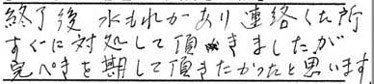 終了後 水もれがあり連絡した所
すぐに対処して頂きましたが
完ぺきを期して頂きたかったと思います